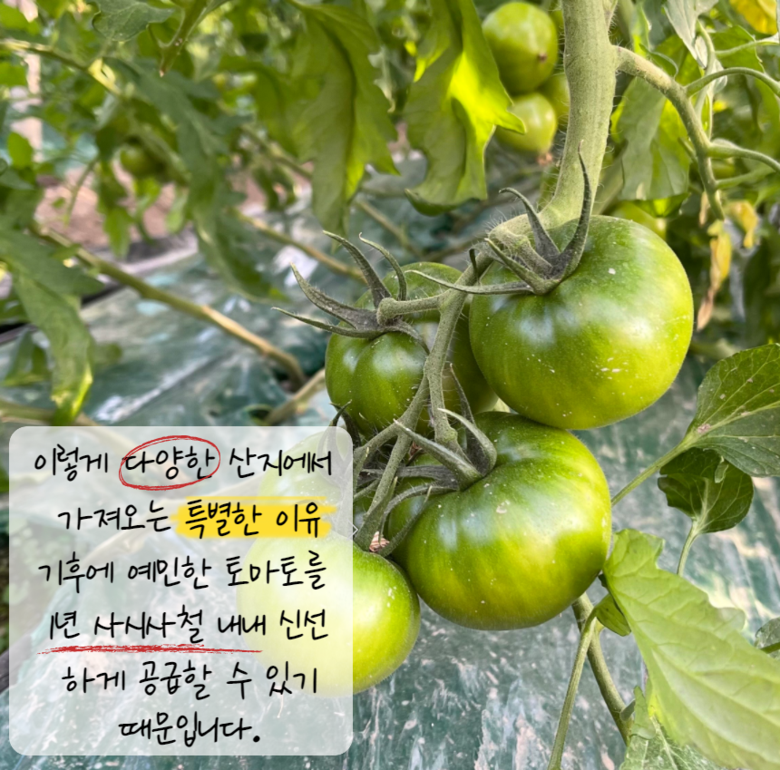 이렇게 다양한 산지에서
가져오는 특별한 이유
기후에 예민한 토마토를
1년 사시사철 내내 신선
하게 공급할 수 있기
때문입니다.